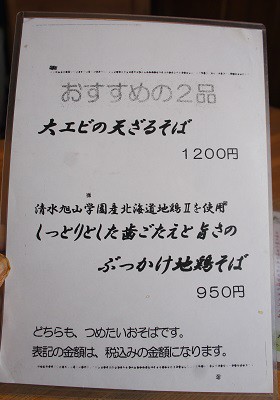 おすすめの2品
大エビの天ざるそば
1200円
清水旭山学園産北海道地鶏Ⅱを使用
しっとりとした歯ごたえと旨さの
ぶっかけ地鶏そば
950円
どちらも、つめたいおそばです。
表記の金額は、税込みの金額になります。